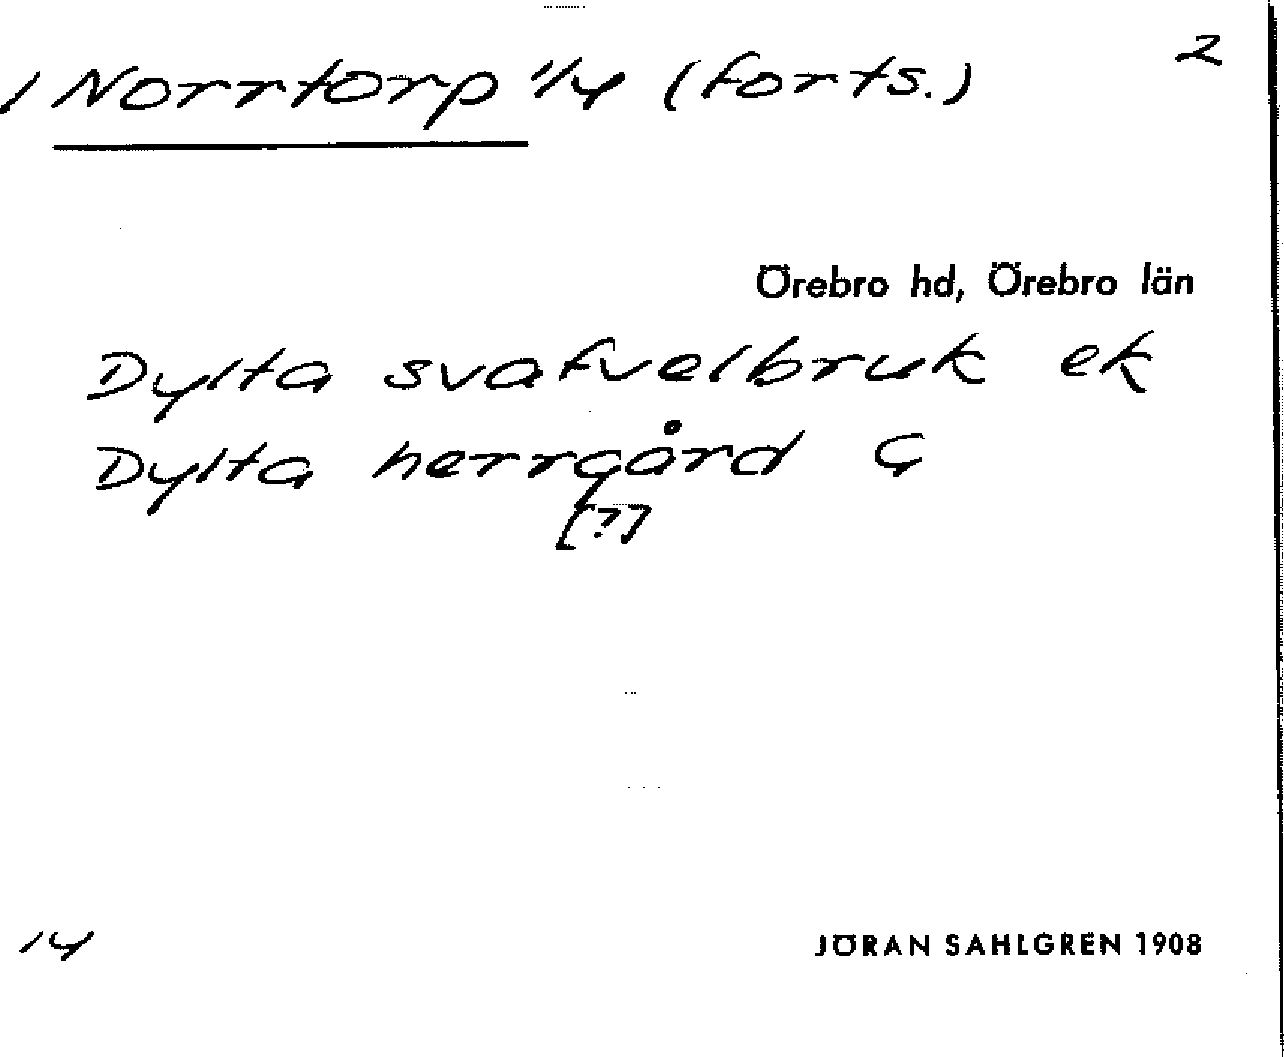 2
1 Norrtorp 1/4 (forts.)
Örebro hd, Örebro län
Dylta svafvelbruk ek
Dylta herrgård G
[?]
14
JÖRAN SAHLGREN 1908